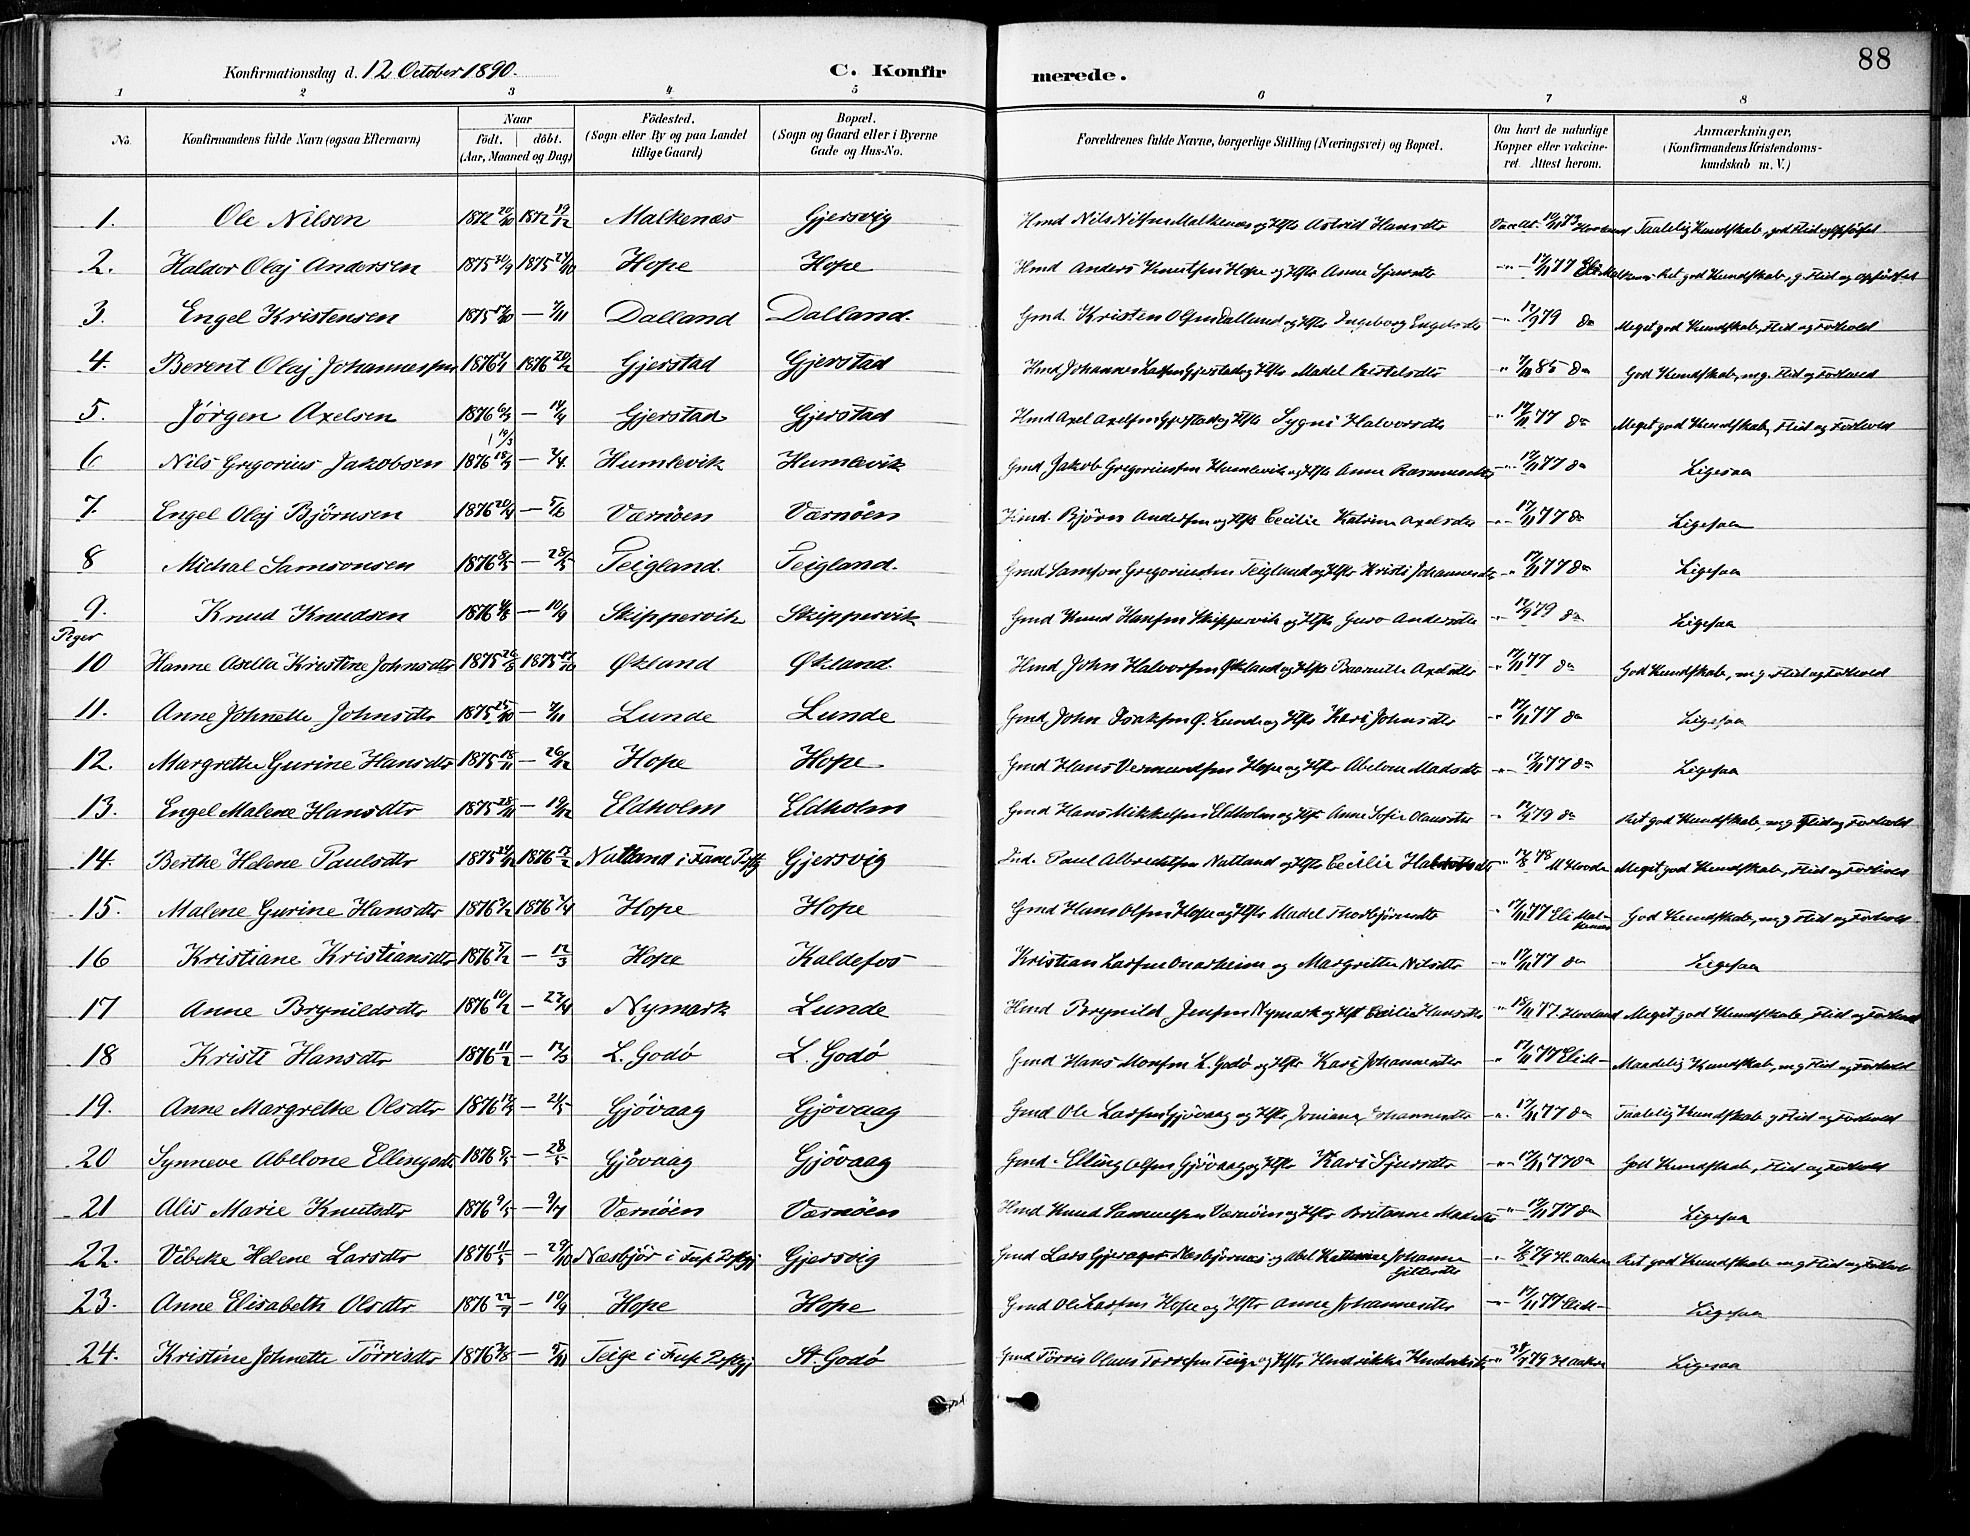 88
Konfirmationsdag d. 12 October 1890. C. Konfirmerede.
1 2 3 4 5 6 7 8
No. Konfirmandens fulde Navn (ogsaa Efternavn) Naar födt. döbt. (Aar, Maaned og Dag) Födested. (Sogn eller By og paa Landet tillige Gaard) Bopæl. (Sogn og Gaard eller i Byerne Gade og Hus-No. Forældrenes fulde Navne, borgerlige Stilling (Næringsvei) og Bopæl. Om havt de naturlige Kopper eller vakcineret. Attest herom. Anmærkninger, (Konfirmandens Kristendomskundskab m. V.)
1. Ole Nilsen 1872 1872 19/12 Malkenæs Gjersvig Hmd Nils Nilsen Malkenæs og Hstr Astrid Hansdtr Taalelig Kundskab, god Flid og Opførsel
2. Haldor Olaj Andersen 1875 1875 Hope Hope Hmd Anders Knutsen Hope og Hstr Anna Sjursdtr 17/11 77 Ret god Kundskab, g. Flid og Opførsel
3. Engel Kristensen 1875 — Dalland Dalland. Gmd. Kristen Olsen Dalland og Hstr Ingeborg Engelsdtr 12/9 79 do Meget god Kundskab, Flid og Forhold
4. Berent Olaj Johannessen 1876 1876 20/2 Gjerstad Gjerstad Hmd Johannes Larsen Gjerstad og Hstr Madel 85 do God Kundskab, m g. Flid og Forhold
5. Jörgen Axelsen 1876 — Gjerstad Gjerstad Hmd Axel Axelsen Gjerstad og Hstr Sygni Halvorsdtr 17/11 77 do Meget god Kundskab, Flid og Forhold
6 Nils Gregorius Jakobsen 1876 — Humlevik Humlevik Gmd Jakob Gregoriussen Humlevik og Hstr Anna Rasmusdtr 17/11 77 do Ligesaa
7. Engel Olaj Björnsen 1876 — 5/6 Værnöen Værnöen Hmd. Björn Andersen og Hstr Cecilie Katrina Axelsdtr 17/11 77 do Ligesaa
8 Michal Samsonsen 1876 — 28/5 Teigland. Teigland. Gmd Samson Gregoriussen Teigland og Hstr Kristi Johannesdtr 17/11 77 do Ligesaa
9. Knud Knudsen 1876 — 10/9 Skippervik Skippervik Gmd Knud Hansen Skippervik og Hstr Guro Andersdtr 12/9 79 do Ligesaa
Piger
10 Hanne Axella Kristine Johnsdtr 1875 1875 Økland Økland. Hmd John Halvorsen Økland og Hstr Axelsdtr 17/11 77 do God Kundskab, m g. Flid og Forhold
11. Anne Johnette Johnsdtr 1875 — Lunde Lunde Gmd John Isaksen Ø. Lunde og Hstr Kari Johnsdtr 17/11 77 do Ligesaa
12. Margrethe Gurine Hansdtr 1875 18/11 — 26/12 Hope Hope Gmd Hans Vermundsen Hope og Hstr Abelone Madsdtr 17/11 77 do Ligesaa
13. Engel Malene Hansdtr 1875 28/11 — 19/12 Eldholm Eldholm Gmd Hans Mikkelsen Eldholm og Hstr Anne Sofie Olausdtr 79 do Ret god Kundskab, m g Flid og Forhold
14. Berthe Helene Paulsdtr 1875 1876 Natland i Fane Pstgj Gjersvig Ind. Paul Albrechtsen Natland og Hstr Cecilie 78 Meget god Kundskab, Flid og Forhold
15. Malene Gurine Hansdtr 1876 1876 Hope Hope Gmd Hans Olsen Hope og Hstr Madel Thorbjörnsdtr 17/11 77 Eli Malkenæs God Kundskab, m g Flid og Forhold
16 Kristiane Kristiansdtr 1876 5/2 — 12/3 Hope Kaldefos Kristian Larsen Onarheim og Margrethe Nilsdtr 17/11 77 do Ligesaa
17 Anne Brynildsdtr 1876 10/2 — 27/4 Nymark Lunde Hmd Brynild Jensen Nymark og Hst Cecilie Hansdtr 77. Hovland Meget god Kundskab, Flid og Forhold
18 Kristi Hansdtr 1876 11/2 — 12/3 L. Godö L. Godö Gmd Hans Monsen L. Godö og Hstr Kari Johannesdtr 17/11 77 Maadelig Kundskab, m g Flid og Forhold
19. Anne Margrethe Olsdtr 1876 — 21/5 Gjövaag Gjövaag Gmd Ole Larsen Gjövaag og Hstr Joniana Johannesdtr 17/11 77 do Taalelig Kundskab g Flid og Forhold
20 Synneve Abelone Ellingsdtr 1876 — 28/5 Gjövaag Gjövaag Gmd. Elling Olsen Gjövaag og Hstr Kari Sjursdtr 17/11 77 do God Kundskab, Flid og Forhold
21 Alis Marie Knutsdtr 1876 9/5 — 9/7 Værnöen Værnöen Hmd Knud Samuelsen Værnöen og Hstr Britanne 17/11 77 do Ligesaa
22. Vibeke Helene Larsdtr 1876 11/5 — 29/10 Næsbjör i Fuse Pstgj Gjersvig Gmd Lars Næsbjörnes og Abel Johanna Gittesdtr 79 H. Aaker Ret god Kundskab m g Flid og Forhold
23. Anne Elisabeth Olsdtr 1876 22/7 — 10/9 Hope Hope Gmd Ole Larsen Hope og Hstr Anne Johannesdtr 17/11 77 Ligesaa
24. Kristine Johnette Törrisdtr 1876 — Teige i Fuse Pstgj St. Godö Gmd Törris Olaus Torresen Teige og Hstr Hendrikke 79 H Aaker Ligesaa